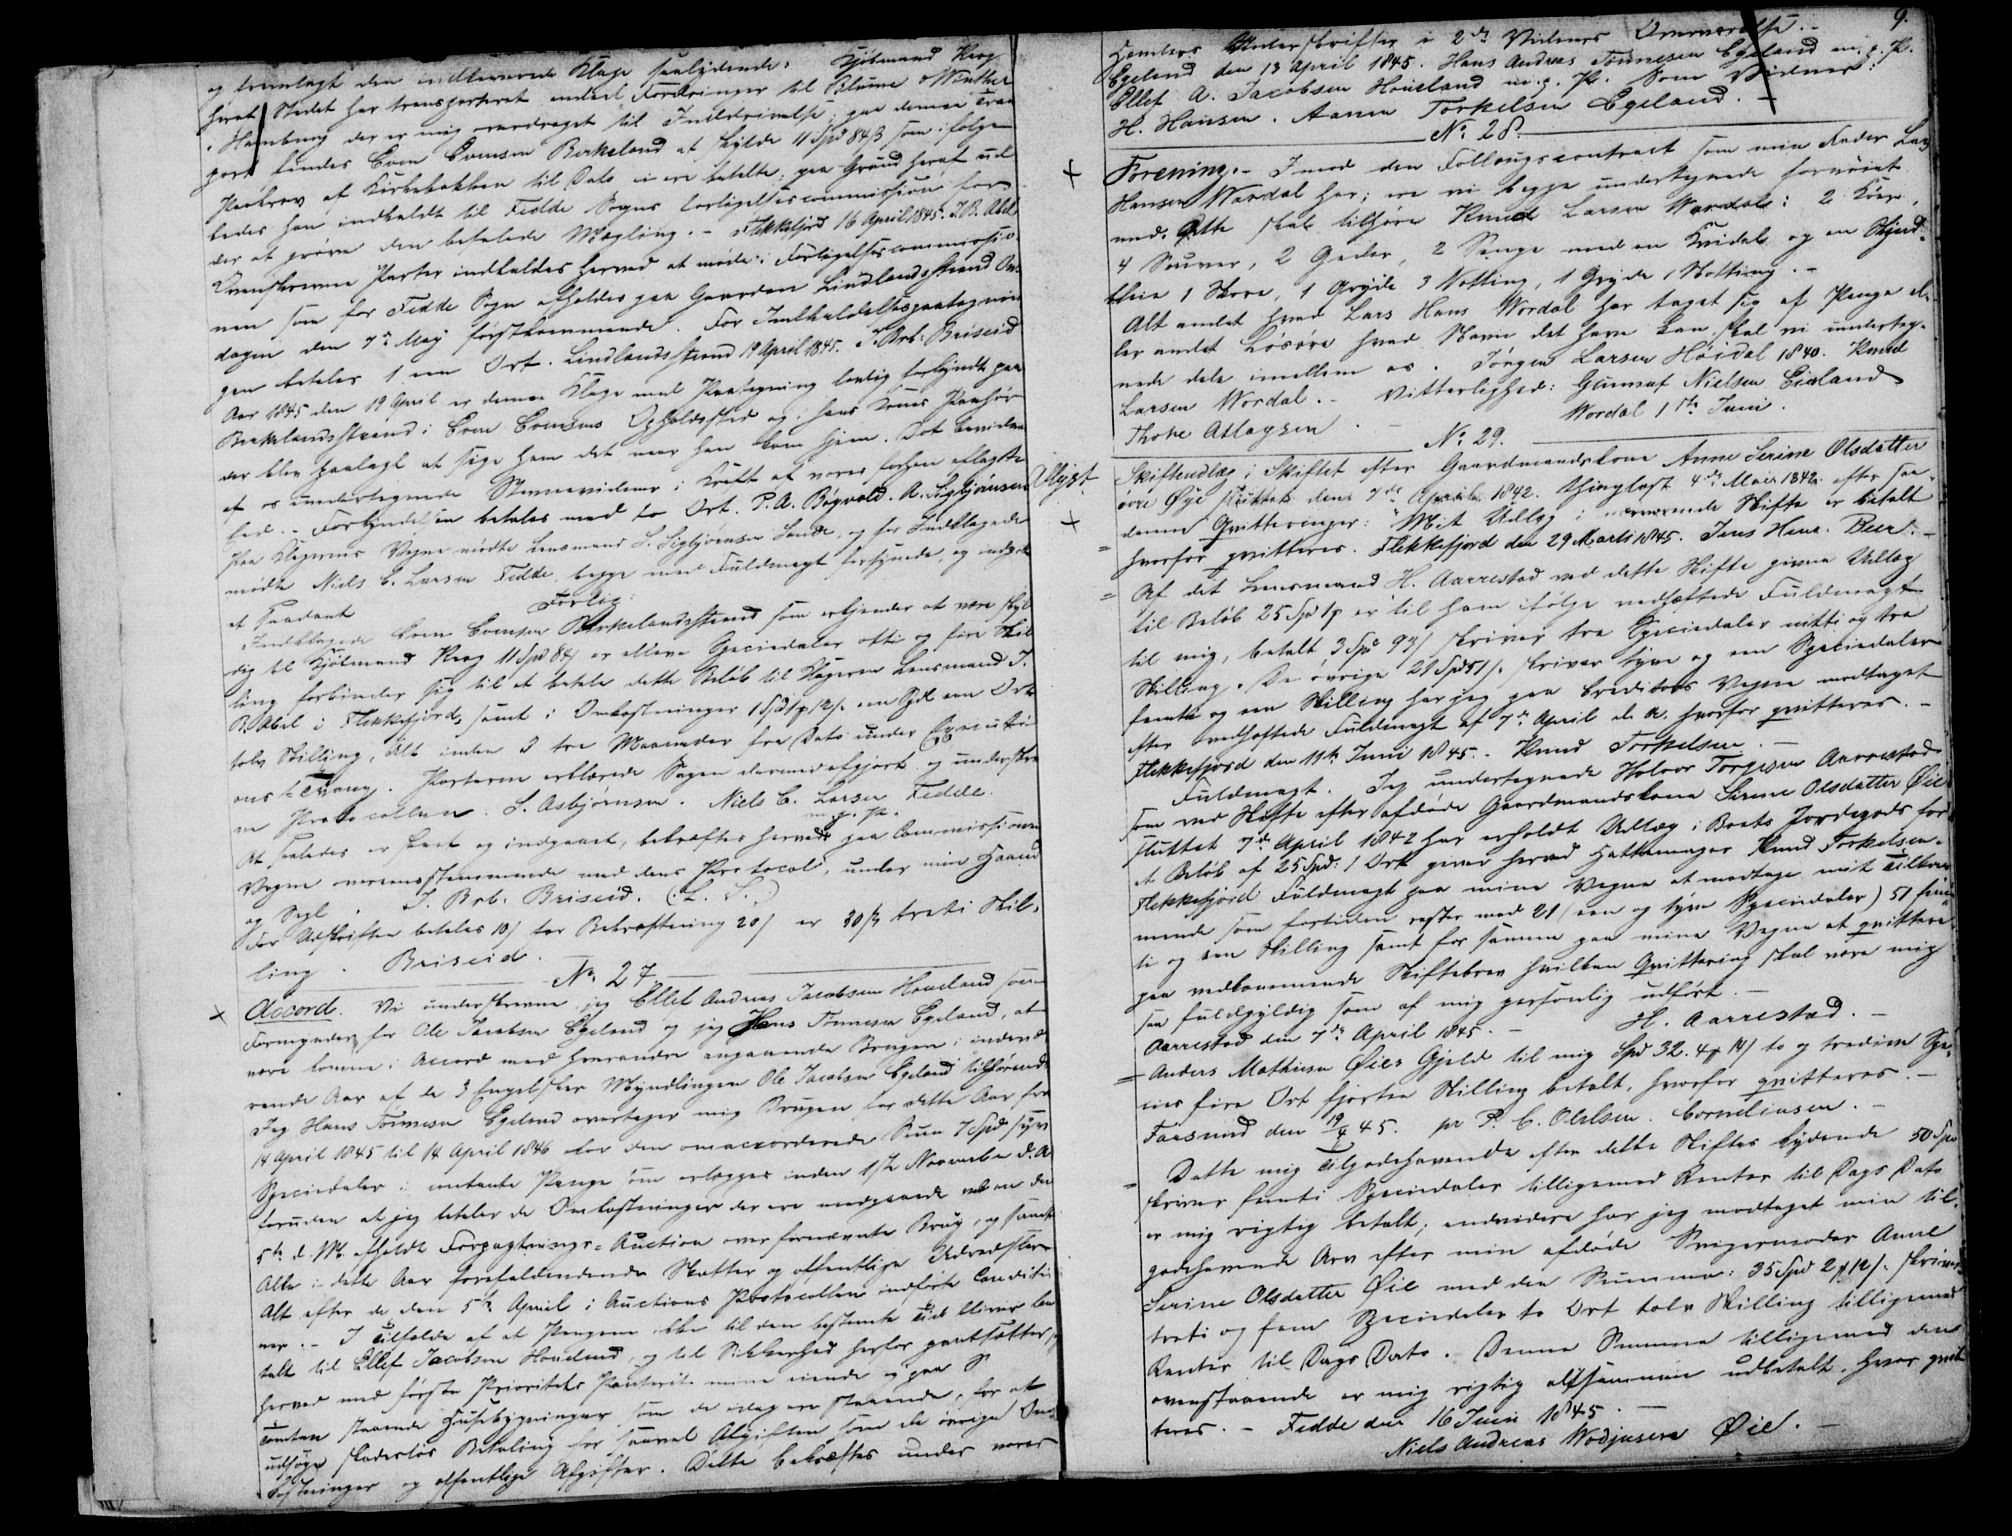 og fremlagt den indleverede Klage saalydende: Kjøbmand Krog
her af Stedet har transporteret endeel Fordringer til Blume & Winther
i Hamburg der er mig overdraget til Inddrivelse; paa denne Trans
port findes Sven Svensen Birkeland at skylde 11 Spd 84 ß som ifølge
Kirkebakken til Dato ei ere betalte; paa Grund heraf ud
bedes han indkaldt til Fedde Sogns Forligelsescommission for
der at prøve den befalede Mægling. – Flekkefjord 16 April 1845. J. B. Abel
Ovenskrevne Parter indkaldes herved at møde i Forligelsescommissio
nen som for Fedde Sogn afholdes paa Gaarden Lindlandsstrand Ons
dagen den 7de May førstkommende. For Indkaldelsespaategnin
gen betales 1 een Ort. Lindlandsstrand 19 April 1845. J. Brb. Briseid
Aar 1845 den 19 April er denne Klage med Paategning lovlig forkyndt paa
Birkelandsstrand i Sven Svensens Opholdssted og i hans Kones Paahør
der blev paalagt at sige ham det naar han kom hjem. Det bevidnes
af os undertegnede Stevnevidner i Kraft af vores forhen aflagte
Eed. – Forkyndelsen betales med to Ort. P. A. Bøgvald. A. Sigbjørnsen
Paa Klagerens Vegne mødte Lensmand S. Sigbjørnsen Lande, og for Indklagede
mødte Niels C. Larsen Fedde, begge med Fuldmagt forsynede, og indgik
et saadant
Forlig:
Indklagede Sven Svensen Birkelandsstrand som erkjender at være skyl
dig til Kjøbmand Krog 11 Spd 84 ß er elleve Speciedaler otti og fire Skil
ling forbinder sig til at betale dette Beløb til Klageren Lensmand J.
B. Abel i Flekkefjord, samt i Omkostninger 1 Spd 1 ort 12 ß een Spd een Ort
tolv Skilling, Alt inden 3 tre Maaneder fra Dato under Executi
ons Tvang. Parterne erklærede Sagen dermed afgjort og underskre
ve Protocollen. S. Asbjørnsen. Niels C. Larsen Fedde.
m. p. P.
At saaledes er skeet og indgaaet, bekræftes herved paa Commissionens
Vegne overensstemmende med dens Protocol, under min Haand
og Segl. J. Brb. Briseid. (L. S.)
For Afskriften betales 10 ß for Bekræftning 20 ß er 30 ß treti Skil-
ling. Briseid.
No 27.
Accord. Vi underskrevne jeg Ellef Andreas Jacobsen Houeland som
Formynder for Ole Jacobsen Egeland og jeg Hans Tønnesen Egeland, at
være komne i Accord med hverandre angaaende Brugen i indevæ
rende Aar af de 3 Engelsker Myndlingen Ole Jacobsen Egeland tilhørende
Jeg Hans Tønnesen Egeland overtager mig Brugen for dette Aar fra
14 April 1845 til 14 April 1846 for den omaccorderede Sum 7 Spd syv
Speciedaler i contante Penge som erlægges inden 1ste November d. A
foruden at jeg betaler de Omkostninger der ere medgaaede ved en den
5te d. M. afholdt Forpagtnings-Auction over fornævnte Brug, og samt
Alle i dette Aar forefaldendende Skatter og offentlige Udredsler
Alt efter de den 5te April i Auctions Protocollen indførte Conditio
ner. – I Tilfælde af at Pengene ikke til den bestemte Tid bliver be
talt til Ellef Jacobsen Houeland, og til Sikkerhed herfor pantsættes
herved med første Prioritets Panteret mine eiende og paa
Tomten staaende Husebygninger som de idag ere staaende, for at
udsøge skadesløs Betaling for saavel Afgiften som de øvrige Om
kostninger og offentlige Afgifter. Dette bekræftes under vores
9.
Hænders Underskrifter i 2de Vidners Overværelse. –
Egeland den 13 April 1845. Hans Andreas Tønnesen Egeland m. p. P.
Ellef A. Jacobsen Houeland m. p. P. Som Vidner:
H. Hansen. Aanen Torkelsen Egeland. –
No 28.
Forening. – Imod den Follougscontract som min Fader Lars
Hansen Wordal har; ere vi begge undertegnede fornøiet
med. Dette skal tilhøre Knud Larsen Wordal: 2 Køer,
4 Souver, 2 Geder, 2 Senge med en Kvidel og en Skind-
1 Skrov, 1 Gryde 3 Notting, 1 Gryde 1 Notting. –
Alt andet hvad Lars Hans Wordal har taget sig af Penge el-
ler andet Løsøre hvad Navn det have kan, skal vi underteg-
nede dele imellem os. Jørgen Larsen Høidal 1840. Knud
Larsen Wordal. – Vitterlighed: Gunnar Nielsen Eieland
Thore Atlagsen. – Wordal 1ste Juni.
No 29.
Aflyst
Skifteudlæg i Skiftet efter Gaardmandskone Anne Serine Olsdatter
øvre Øye sluttet den 7de April 1842. Thinglæst 4de Mai 1842 efter saa-
danne Qvitteringer: "Mit Udlæg i nærværende Skifte er betalt
hvorfor qvitteres. Flekkefjord den 29 Marti 1845. Jens Henr. Beer. –
Af det Lensmand H. Aarrestad ved dette Skifte givne Udlæg
til Beløb 25 Spd 1 ort er til ham ifølge vedhæftede Fuldmagt
til mig, betalt 3 Spd 93 ß skriver tre Speciedaler nitti og tre
Skilling. De øvrige 21 Spd 51 ß skriver tyve og een Speciedaler
femti og een Skilling har jeg paa Creditors Vegne modtaget
efter vedhæftede Fuldmagt af 7de April d. A. hvorfor qvitteres. –
Flekkefjord den 11te Juni 1845. – Knud Torkelsen. –
Fuldmagt. Jeg undertegnede Holver Torgisen Aarrestad
som ved Skifte efter afdøde Gaardmandskone Serine Olsdatter Øie
sluttet 7de April 1842 har erholdt Udlæg i Boets Jordegods for
et Beløb af 25 Spd: 1 Ort giver herved Hattemager Knud Torkelsen
Flekkefjord Fuldmagt paa mine Vegne at modtage mit Tilkom-
mende som fortiden rester med 21 (een og tyve Speciedaler) 51 fem-
ti og een Skilling samt for samme paa mine Vegne at qvittere
paa vedkommende Skiftebrev hvilken Qvittering skal være mig
saa fuldgyldig som af mig personlig udført. –
Aarrestad den 7de April 1845. – H. Aarrestad. –
Anders Mathisen Øies Gjeld til mig Spd 32. 4 ort 14 ß to og tredive Spe-
cier fire Ort fjorten Skilling betalt, hvorfor qvitteres. –
Farsund den 19/4 45. pr P. C. Olelsen. Corneliusen. –
Dette mig Tilgodehavende efter dette Skiftes Lydende 50 Spd
skriver femti Speciedaler tilligemed Renter til Dags Dato
er mig rigtig betalt; endvidere har jeg modtaget min til-
godehavende Arv efter min afdøde Svigermoder Anne
Serine Olsdatter Øie med den Summa: 35 Spd 2 ort 12 ß skriver
treti og fem Speciedaler to Ort tolv Skilling tilligemed
Renter til Dags Dato. Denne Summa tilligemed den
ovenstaaende er mig rigtig alsammen udbetalt, hvor qvit
teres. – Fedde den 16 Juni 1845. –
Niels Andreas Wodjusen Øie. –